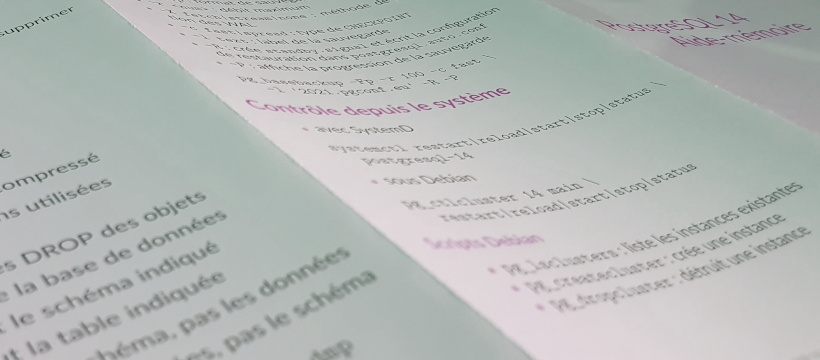 supprimer
é
compressé
ns utilisées
s DROP des objets
e la base de données
t le schéma indiqué
ut la table indiquée
héma, pas les données
es, pas le schéma
dmp
format de sauvegarde
délai maximum
: méthode de
des WAL
fast|spread : type de CHECKPOINT
: label de la sauvegarde
: crée standby.signal et écrit la configuration
de restauration dans postgresql.auto.conf
-P : affiche la progression de la sauvegarde
pg_basebackup -Fp -r 100 -c fast \
-l '2021.pgconf.eu' -R -P
Contrôle depuis le système
• avec SystemD
systemctl restart|reload|start|stop|status \
postgresql-14
• sous Debian
pg_ctlcluster 14 main \
restart|reload|start|stop|status
Scripts Debian
• pg_lsclusters : liste les instances existantes
• pg_createcluster : crée une instance
• pg_dropcluster : détruit une instance
PostgreSQL 14
Aide-mémoire